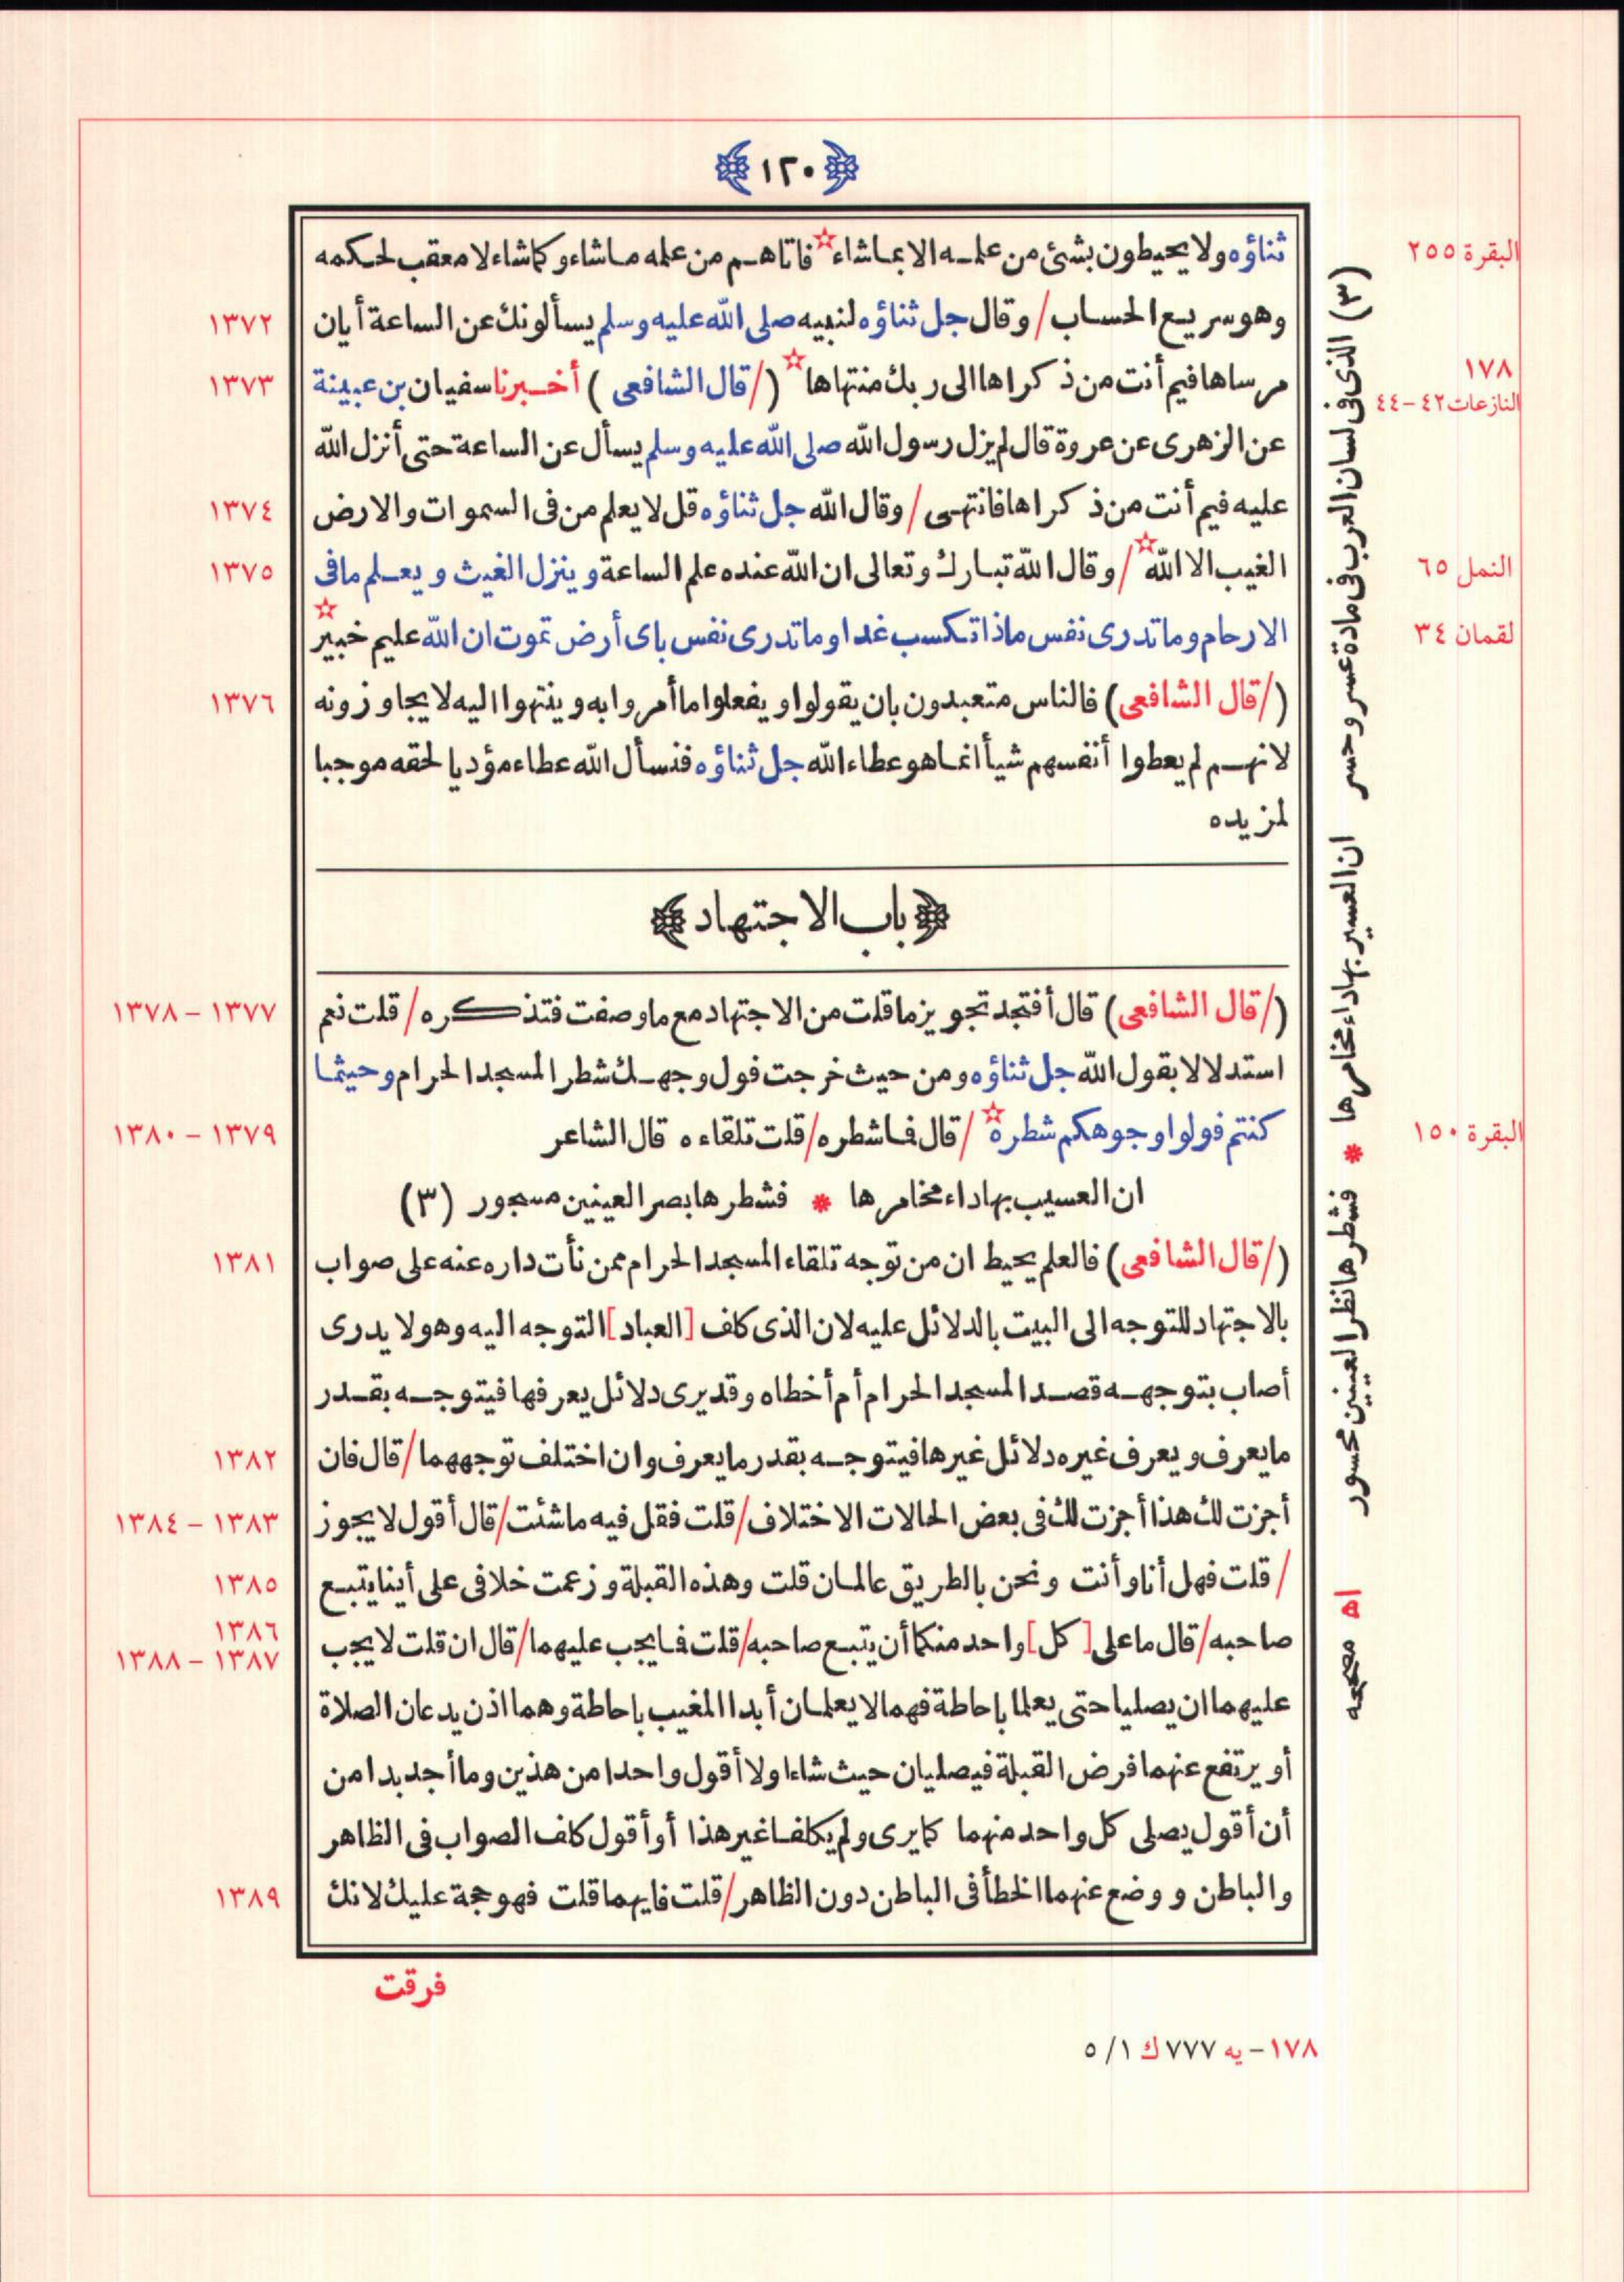 ﴿١٢٠﴾
ثناؤه ولا يحيطون بشئ من علمه الا بما شاء☆ فاتاهم من علمه ما شاء وكما شاء لا معقب لحكمه
البقرة ٢٥٥
وهو سريع الحساب / وقال جل ثناؤه لنبيه صلى الله عليه وسلم يسألونك عن الساعة أيان
١٣٧٢
مرساها فيم أنت من ذكراها الى ربك منتهاها☆ (/ قال الشافعى ) أخبرنا سفيان بن عيينة
١٣٧٣
١٧٨
النازعات ٤٢-٤٤
عن الزهرى عن عروة قال لم يزل رسول الله صلى الله عليه وسلم يسأل عن الساعة حتى أنزل الله
عليه فيم أنت من ذكراها فانتهى / وقال الله جل ثناؤه قل لا يعلم من فى السموات والارض
١٣٧٤
الغيب الا الله☆ / وقال الله تبارك وتعالى ان الله عنده علم الساعة وينزل الغيث ويعلم ما فى
١٣٧٥
النمل ٦٥
الارحام وما تدرى نفس ماذا تكسب غدا وما تدرى نفس باى أرض تموت ان الله عليم خبير☆
لقمان ٣٤
(/ قال الشافعى) فالناس متعبدون بان يقولوا ويفعلوا ما أمروا به وينتهوا اليه لا يجاوزونه
١٣٧٦
لانهم لم يعطوا أنفسهم شيأ انما هو عطاء الله جل ثناؤه فنسأل الله عطاء مؤديا لحقه موجبا
لمزيده
﴿باب الاجتهاد﴾
(/ قال الشافعى) قال أفتجد تجويز ما قلت من الاجتهاد مع ما وصفت فتذكره / قلت نعم
١٣٧٧ - ١٣٧٨
استدلالا بقول الله جل ثناؤه ومن حيث خرجت فول وجهك شطر المسجد الحرام وحيثما
كنتم فولوا وجوهكم شطره☆ / قال فما شطره / قلت تلقاءه قال الشاعر
١٣٧٩ - ١٣٨٠
البقرة ١٥٠
ان العسيب بها داء مخامرها * فشطرها بصر العينين مسجور (٣)
(/ قال الشافعى) فالعلم يحيط ان من توجه تلقاء المسجد الحرام ممن نأت داره عنه على صواب
١٣٨١
بالاجتهاد للتوجه الى البيت بالدلائل عليه لان الذى كلف [العباد] التوجه اليه وهو لا يدرى
أصاب بتوجهه قصد المسجد الحرام أم أخطاه وقد يرى دلائل يعرفها فيتوجه بقدر
ما يعرف ويعرف غيره دلائل غيرها فيتوجه بقدر ما يعرف وان اختلف توجههما / قال فان
١٣٨٢
أجزت لك هذا أجزت لك فى بعض الحالات الاختلاف / قلت فقل فيه ما شئت / قال أقول لا يجوز
١٣٨٣ - ١٣٨٤
/ قلت فهل أنا وأنت ونحن بالطريق عالمان قلت وهذه القبلة وزعمت خلافى على أينا يتبع
١٣٨٥
صاحبه / قال ما على [كل] واحد منكما أن يتبع صاحبه / قلت فما يجب عليهما / قال ان قلت لا يجب
١٣٨٦
١٣٨٧ - ١٣٨٨
عليهما ان يصليا حتى يعلما باحاطة فهما لا يعلمان أبدا المغيب باحاطة وهما اذن يدعان الصلاة
أو يرتفع عنهما فرض القبلة فيصليان حيث شاءا ولا أقول واحدا من هذين وما أجد بدا من
أن أقول يصلى كل واحد منهما كما يرى ولم يكلفا غير هذا أو أقول كلف الصواب فى الظاهر
والباطن ووضع عنهما الخطأ فى الباطن دون الظاهر / قلت فايهما قلت فهو حجة عليك لانك
١٣٨٩
فرقت
(٣) الذى فى لسان العرب فى مادة عسر وحسر ان العسير بها داء مخامرها * فشطرها نظر العينين محسور اه مصححه
١٧٨ - يه ٧٧٧ ك ١/ ٥